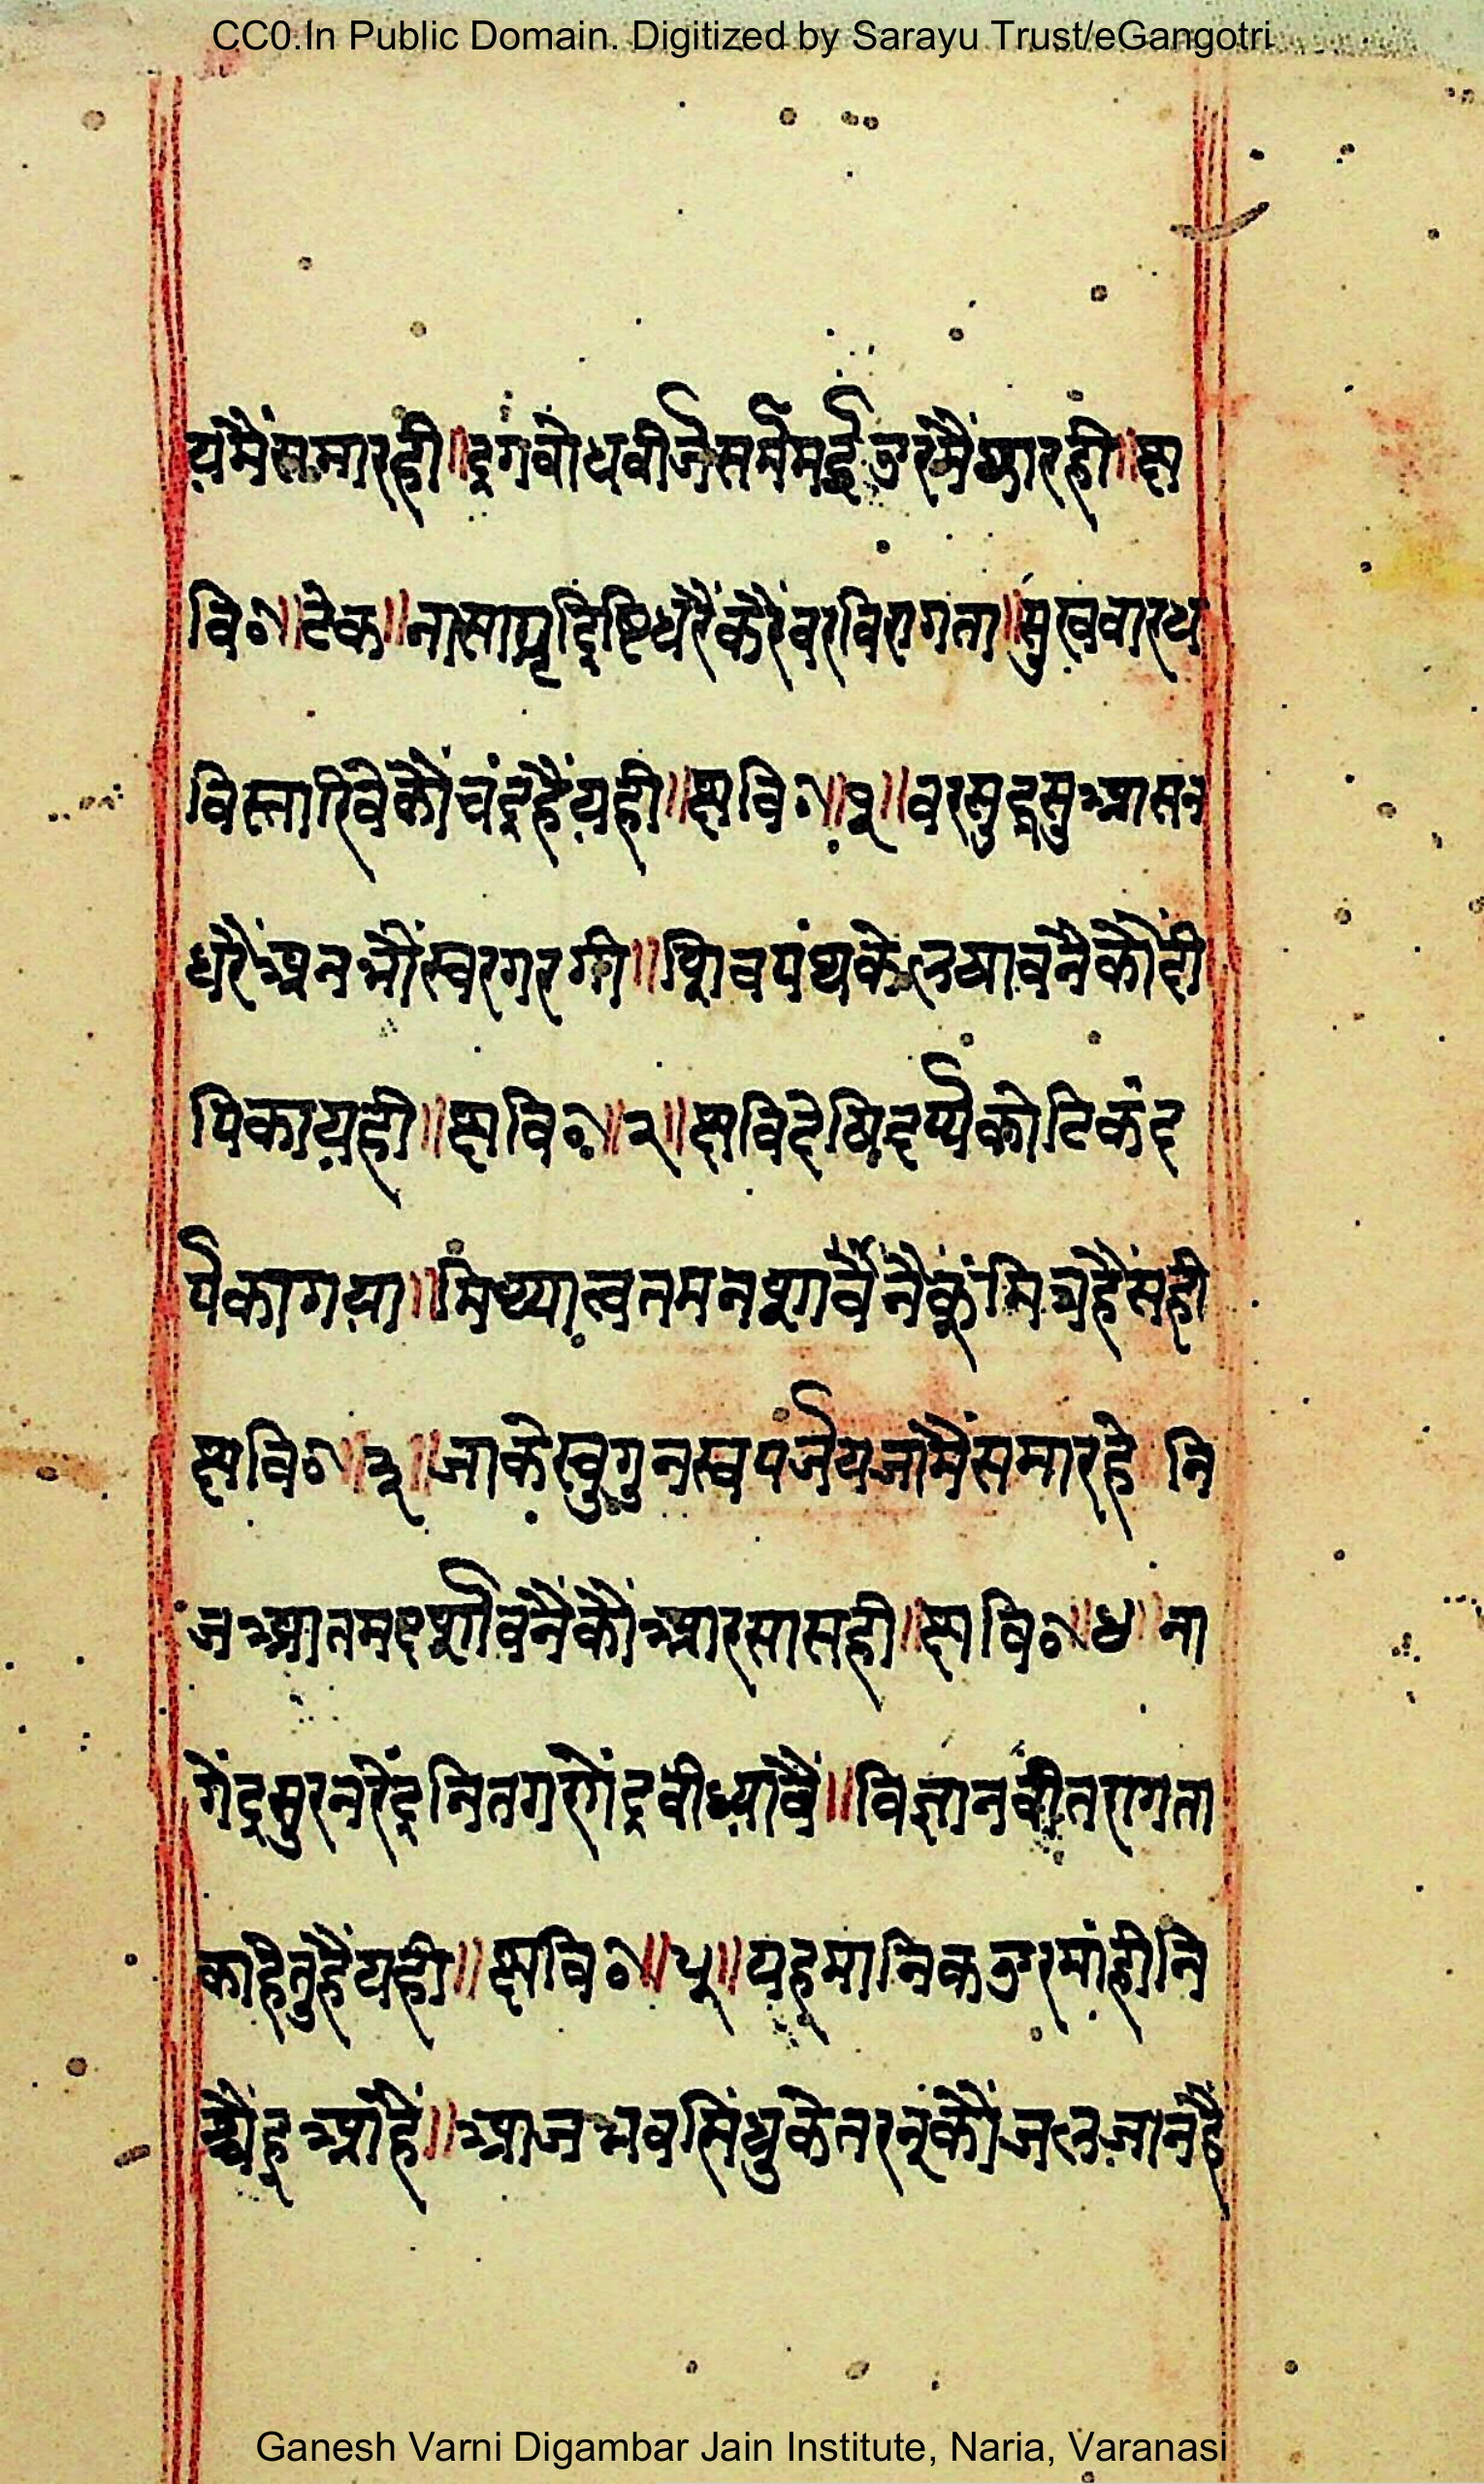 CC0.In Public Domain. Digitized by Sarayu Trust/eGangotri
यमैंसमारही॥द्रगबोधबीर्जसर्ममईउरमैंधाररही॥छ
वि०॥टेक॥नासाग्रद्रिष्टिधरैंकरैंवरविरागता॥सुखवारध
विस्तारिवेकौंचंद्रहैंयही॥छवि०॥१॥वरसुद्रसुआसन
धरैंअनभौंस्वरगरगी॥शिवपंथकेलयावनैकौंदी
पिकायही॥छवि०॥२॥छविदेषिदर्प्पकोटिकंद
र्पकागया॥मिथ्यात्वतमनशावैंनैकूंमित्रहैंसही
छवि०॥३॥जाकेस्वगुनस्वपर्जयजामैंसमारहे नि
जआतमदर्शावनैंकौंआरसासही॥छवि०॥४॥ना
गेंद्रसुरनरेंद्रनितगरगेंद्रबीध्यावैं॥विज्ञानवीतरागता
काहेतुहैंयही॥छवि०॥५॥यहमानिकउरमांहीनि
श्चैंहूआहैं॥आजभवसिंधुकेतरनूंकौंजलजानहैं
Ganesh Varni Digambar Jain Institute, Naria, Varanasi